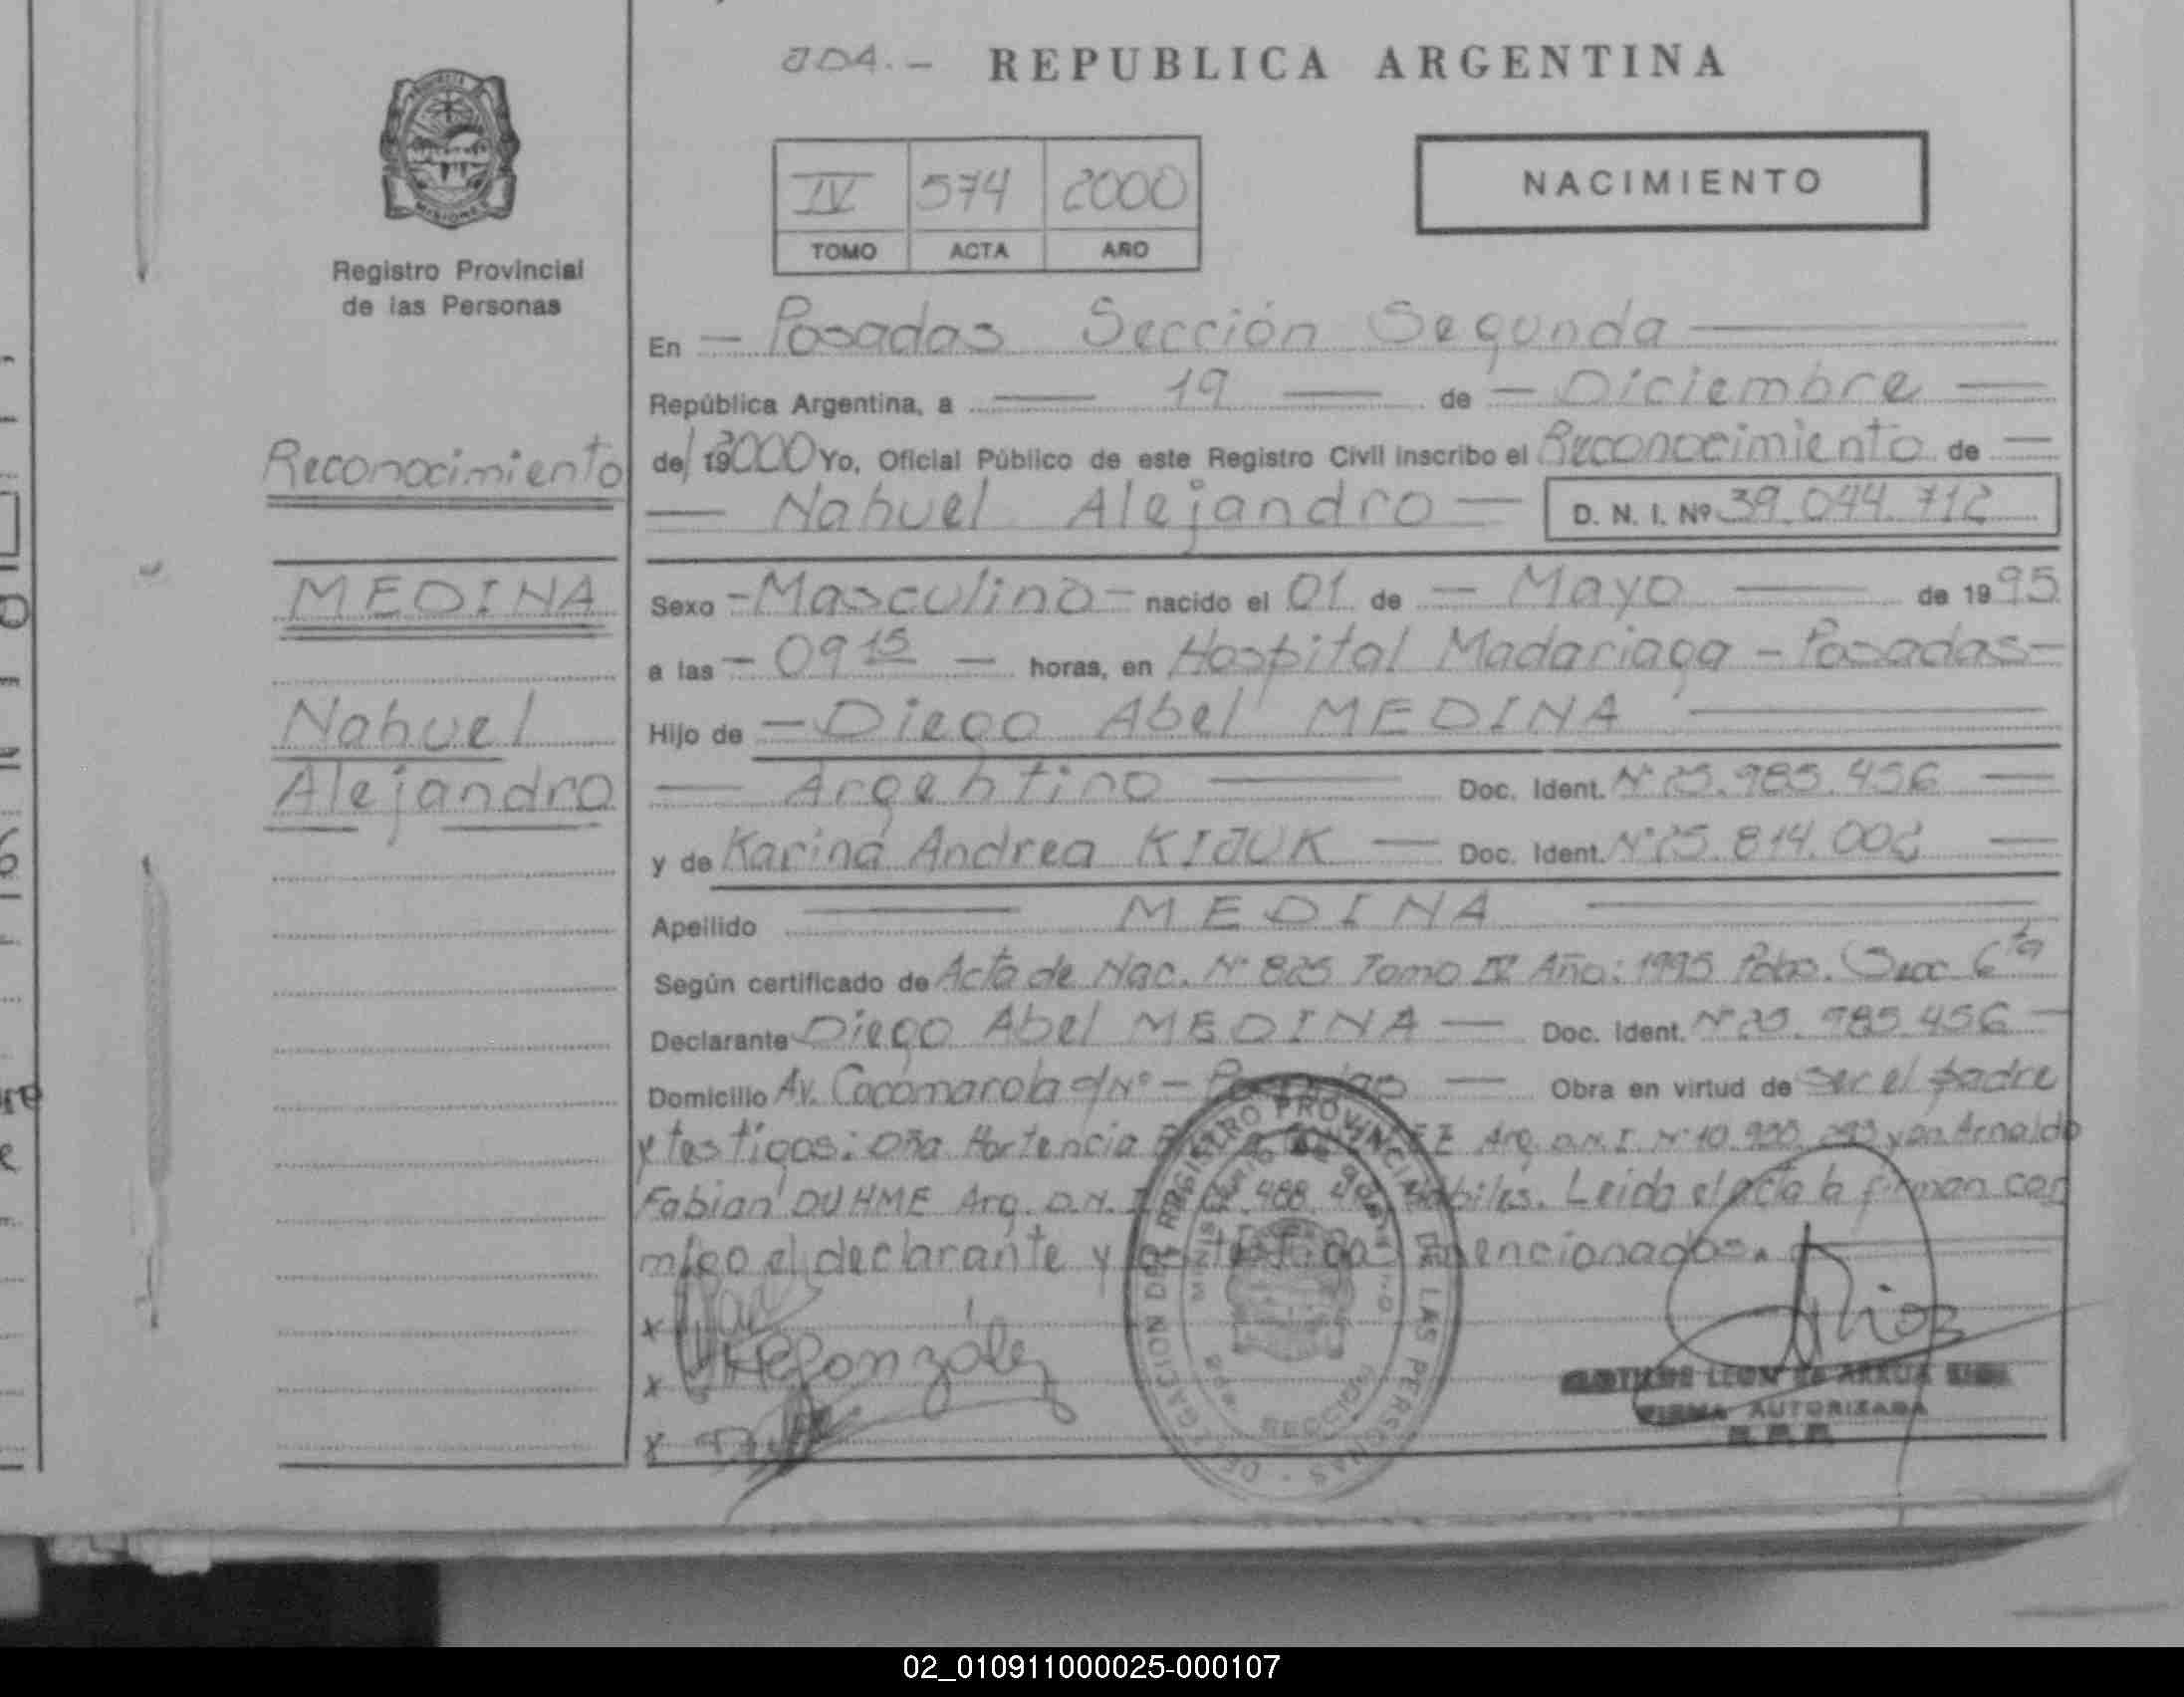 JDA.- REPUBLICA ARGENTINA
MISIONES
Registro Provincial
de las Personas
IV 574 2000
TOMO ACTA AÑO
NACIMIENTO
Reconocimiento
MEDINA
Nahuel
Alejandro
En - Posadas Sección Segunda
República Argentina, a 19 de - Diciembre
de/ 192000 Yo, Oficial Público de este Registro Civil inscribo el Reconocimiento de
Nahuel Alejandro - D. N. I. Nº 39.044.712
Sexo - Masculino - nacido el 01 de - Mayo de 1995
a las - 09 15 - horas, en Hospital Madariaga - Posadas -
Hijo de - Diego Abel MEDINA
Argentino Doc. Ident. Nº 25.985.456
y de Karina Andrea KIJUK Doc. Ident. Nº 25.814.002
Apellido MEDINA
Según certificado de Acta de Nac. Nº 825 Tomo IV Año: 1995 Pdas. Secc 6ta
Declarante Diego Abel MEDINA - Doc. Ident. Nº 25.985.456 -
Domicilio Av. Cocomarola s/Nº - Posadas - Obra en virtud de ser el padre
y testigos: Dña Hortencia Arg. D.N.I. Nº y Dn. Arnaldo
Fabian DUHME Arg. D.N.I. hábiles. Leida el acta la firman con
migo el declarante y los testigos mencionados.
x
x González
x
Rios
DELEGACION DEL REGISTRO PROVINCIAL DE LAS PERSONAS
LEON DE ARRUA
FIRMA AUTORIZADA
02_010911000025-000107